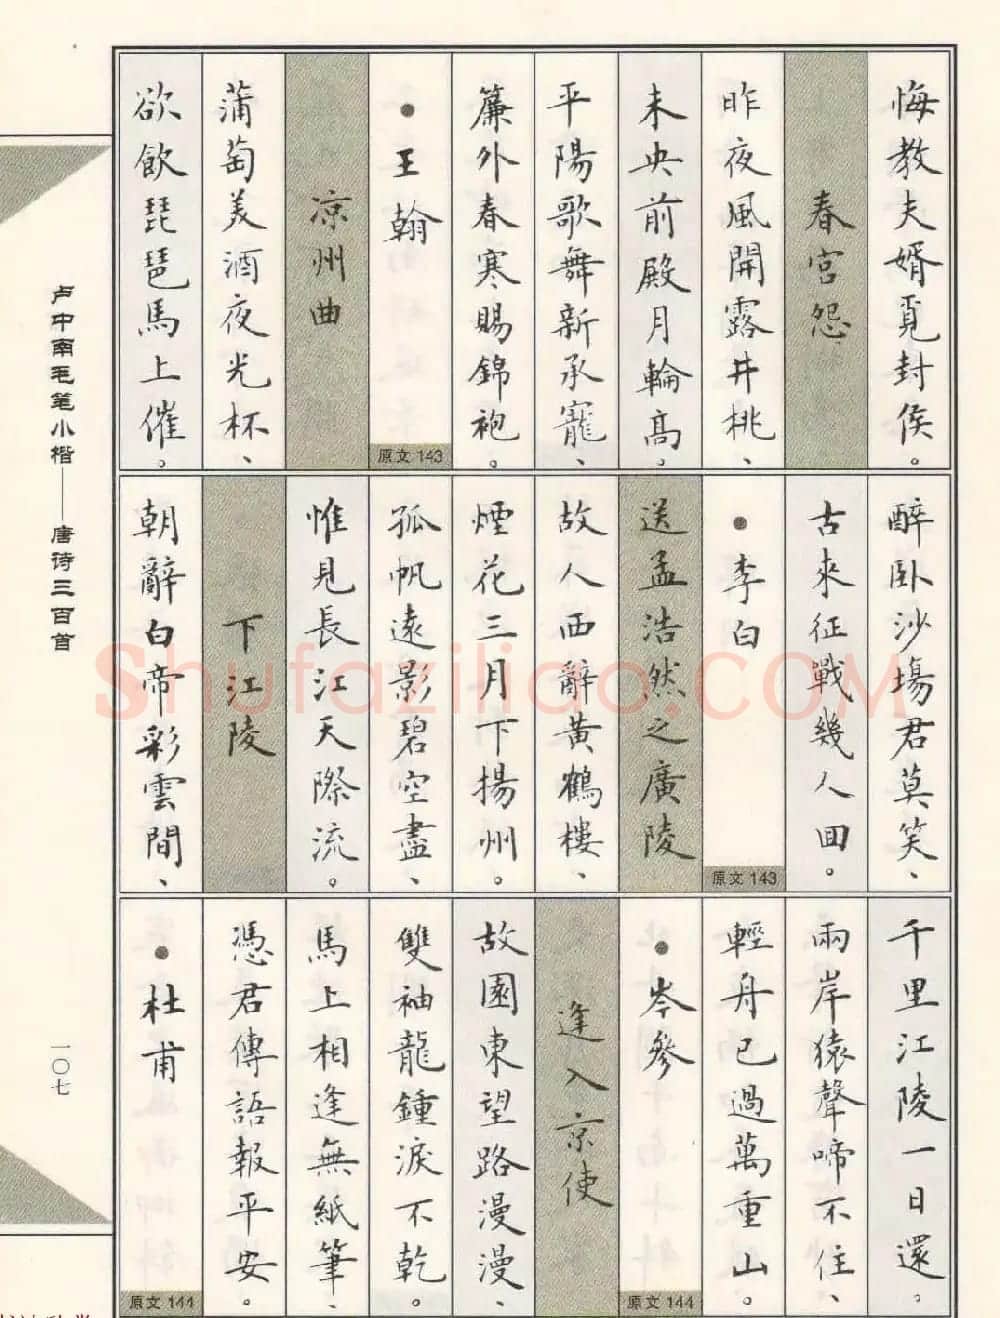 悔教夫婿覓封侯。
春宮怨
昨夜風開露井桃、
未央前殿月輪高。
平陽歌舞新承寵、
簾外春寒賜錦袍。
●王翰
原文 143
凉州曲
蒲萄美酒夜光杯、
欲飲琵琶馬上催。
醉卧沙場君莫笑、
古來征戰幾人回。
●李白
原文 143
送孟浩然之廣陵
故人西辭黃鶴樓、
煙花三月下揚州。
孤帆遠影碧空盡、
惟見長江天際流。
下江陵
朝辭白帝彩雲間、
千里江陵一日還。
兩岸猿聲啼不住、
輕舟已過萬重山。
●岑參
原文 144
逢入京使
故園東望路漫漫、
雙袖龍鍾淚不乾。
馬上相逢無紙筆、
憑君傳語報平安。
●杜甫
原文 144
卢中南毛笔小楷——唐诗三百首
一〇七
Shufaziliao.COM